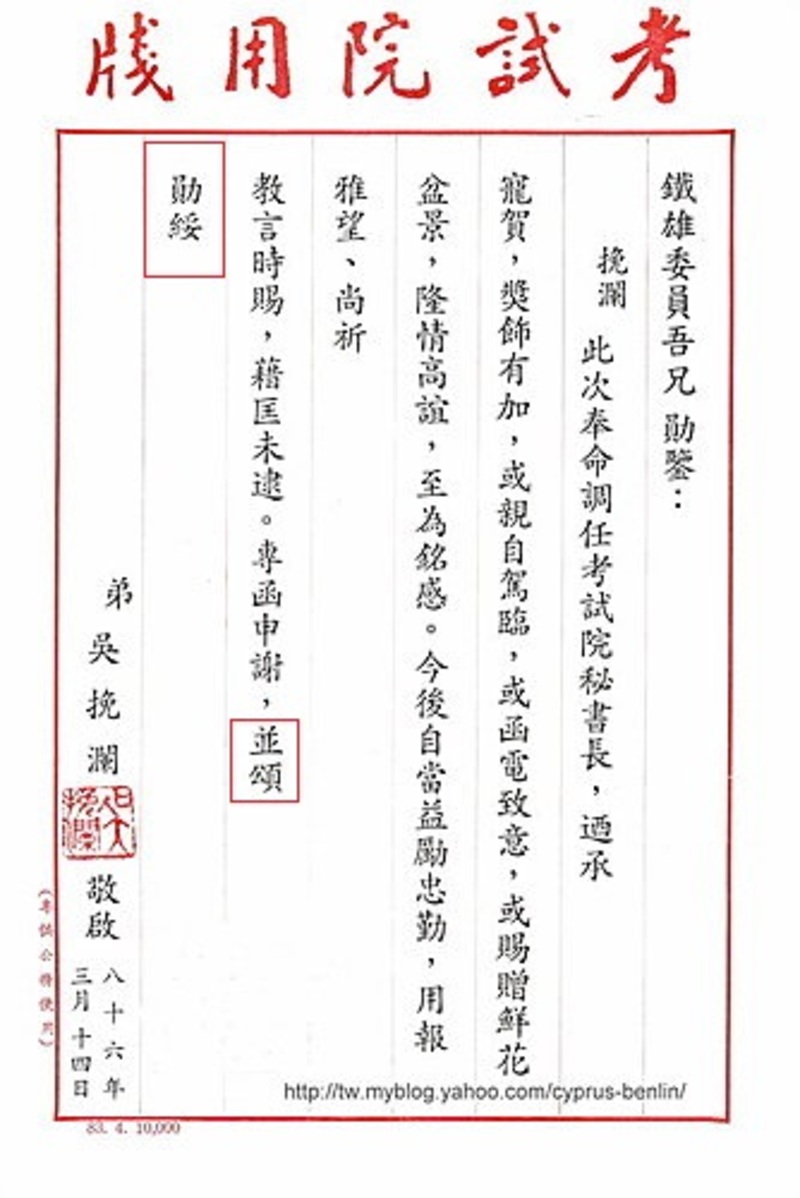 考試院用牋
鐵雄委員吾兄 勛鑒：
挽瀾 此次奉命調任考試院秘書長，迺承
寵賀，獎飾有加，或親自駕臨，或函電致意，或賜贈鮮花
盆景，隆情高誼，至為銘感。今後自當益勵忠勤，用報
雅望、尚祈
教言時賜，藉匡未逮。專函申謝，並頌
勛綏
弟 吳挽瀾 吳挽瀾 敬啟 八十六年
三月十四日
（專供公務使用）
83. 4. 10,000
http://tw.myblog.yahoo.com/cyprus-benlin/